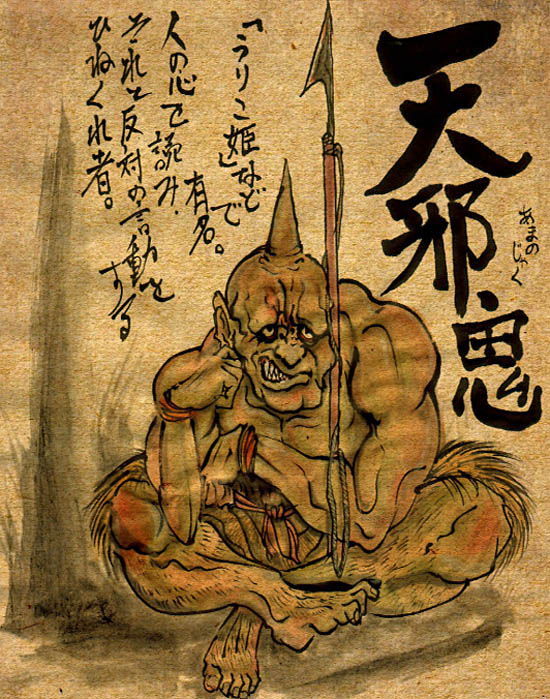 天邪鬼
あまのじゃく
「うりこ姫」などで
有名。
人の心を読み、
それと反対の言動をする
ひねくれ者。